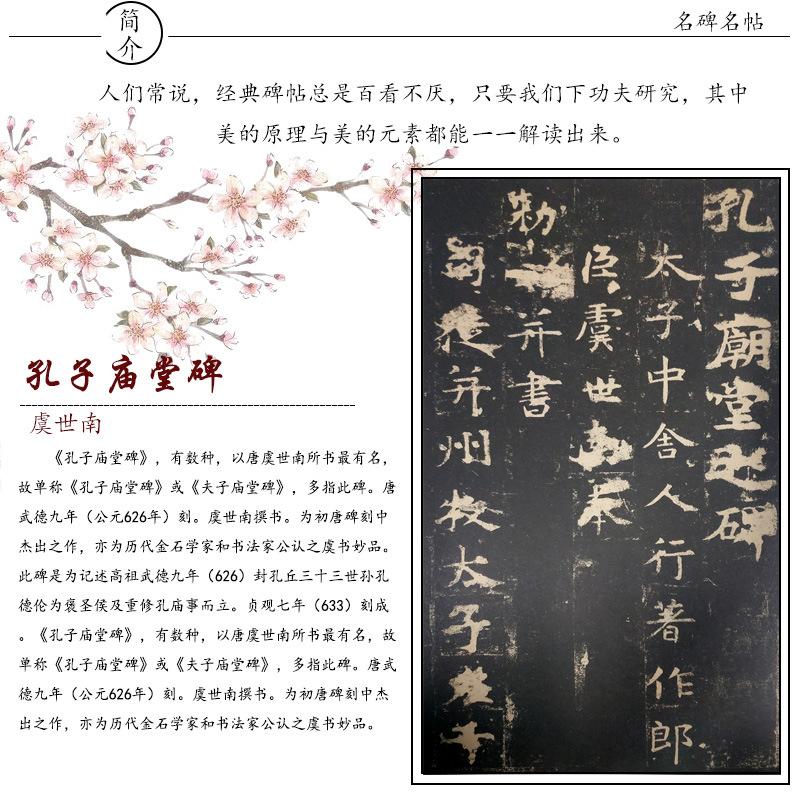 简介
名碑名帖
人们常说，经典碑帖总是百看不厌，只要我们下功夫研究，其中
美的原理与美的元素都能一一解读出来。
孔子庙堂碑
虞世南
《孔子庙堂碑》，有数种，以唐虞世南所书最有名，
故单称《孔子庙堂碑》或《夫子庙堂碑》，多指此碑。唐
武德九年（公元626年）刻。虞世南撰书。为初唐碑刻中
杰出之作，亦为历代金石学家和书法家公认之虞书妙品。
此碑是为记述高祖武德九年（626）封孔丘三十三世孙孔
德伦为褒圣侯及重修孔庙事而立。贞观七年（633）刻成
。《孔子庙堂碑》，有数种，以唐虞世南所书最有名，故
单称《孔子庙堂碑》或《夫子庙堂碑》，多指此碑。唐武
德九年（公元626年）刻。虞世南撰书。为初唐碑刻中杰
出之作，亦为历代金石学家和书法家公认之虞书妙品。
孔子廟堂之碑
太子中舍人行著作郎
臣虞世南奉
勑 并書
司徒并州牧太子左千